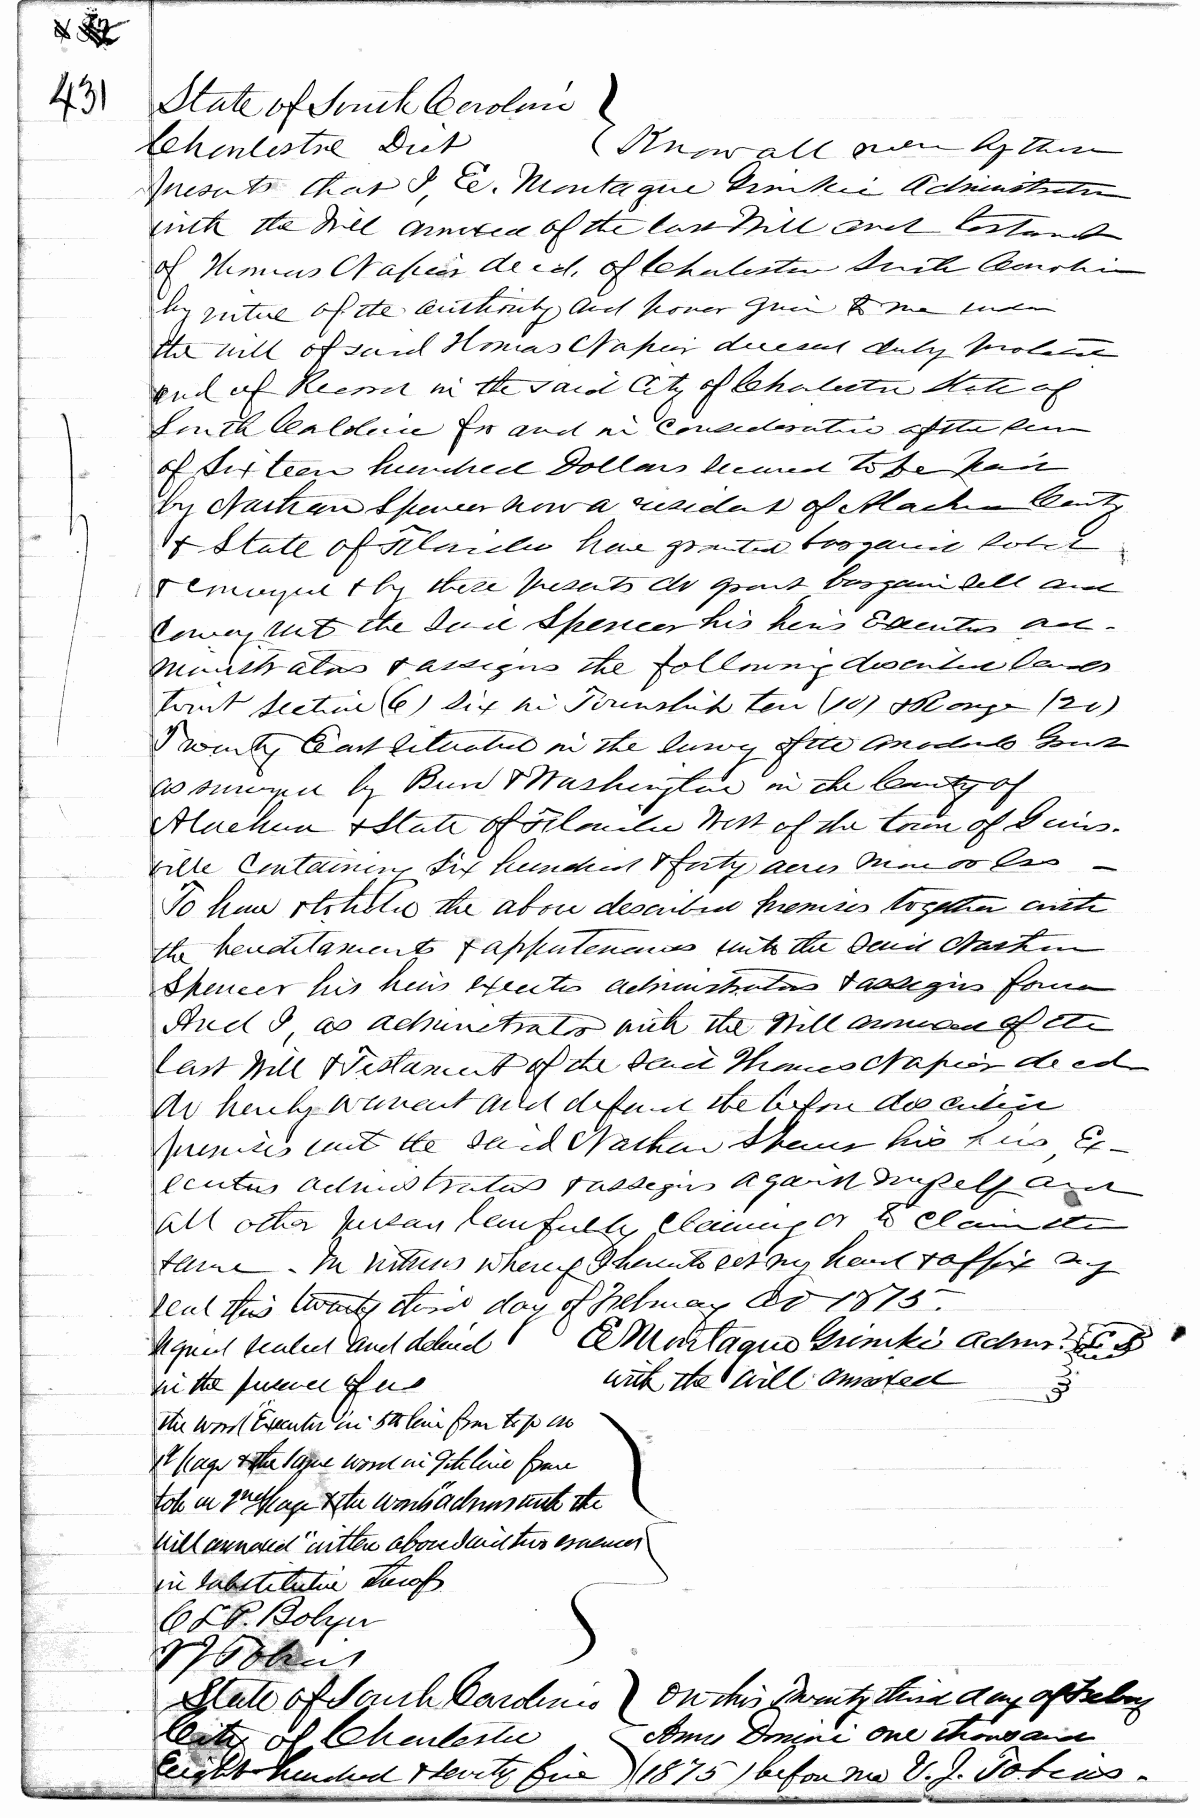 431
State of South Carolina
Charlestne Dist Know all men by these
presents that I, E. Montague Grimkie Administrator
with the Will annexed of the last Will and testament
of Thomas Napier decd. of Charleston South Carolina
by virtue of the authority and power given to me under
the will of said Thomas Napier deceased duly probated
and of Record in the said City of Charleston State of
South Carolina for and in Consideration of the sum
of Sixteen hundred Dollars secured to be paid
by Nathan Spencer now a resident of Alachua County
& State of Florida have granted bargained sold
& conveyed & by these presents do grant bargain sell and
Convey unto the said Spencer his heirs Executors ad-
ministrators & assigns the following described lands
towit section (6) six in Township ten (10) & Range (20)
Twenty East situated in the survey of the Arredondo Grant
as surveyed by Burr & Washington in the County of
Alachua & State of Florida West of the town of Gains-
ville Containing Six hundred & forty acres more or less –
To have & to hold the above described premises together with
the hereditaments & appurtenances unto the said Nathan
Spencer his heirs executors administrators & assigns forever
And I, as administrator with the Will annexed of the
last Will & Testament of the said Thomas Napier decd
do hereby warrent and defend the before described
premises unto the said Nathan Spencer his heirs, Ex-
ecutors administrators & assigns against myself and
all other person lawfully claiming or to claim the
same – In witness whereof I hereunto set my hand & affix my
seal this twenty third day of February AD 1875.
signed sealed and delived E Montague Grimké Admr. L S
in the presence of us with the will annexed
the word "Executor" in 5th line from top on
1st page & the same word in 9th line from
top on 2nd page & the words "admr with the
will annexed" written above said two erasures
in substitution thereof
C L P. Bolger
V J Tobias
State of South Carolina On this Twenty third day of Feby
City of Charleston Anno Domini one thousand
Eight hundred & seventy five (1875) before me V. J. Tobias.